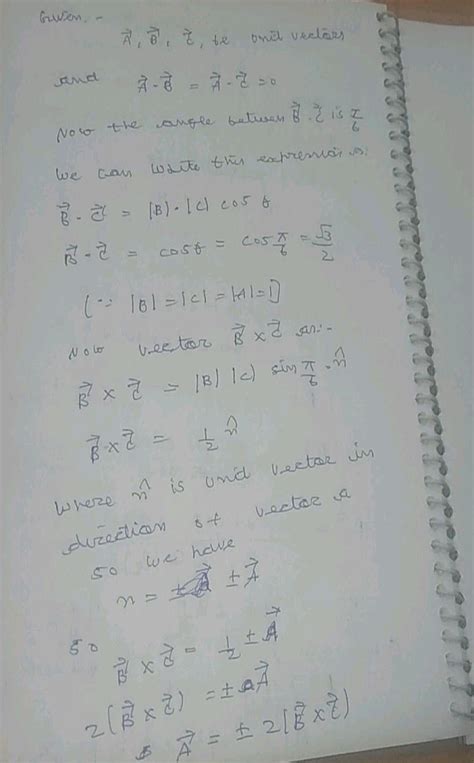 Given :-
A⃗, B⃗, C⃗, be unit vectors
and A⃗-B⃗ = A⃗-C⃗ =0
Now the angle between B⃗-C⃗ is π/6
we can write this expression as
B⃗-C⃗ = |B|·|C| cosθ
B⃗-C⃗ = cosθ = cos π/6 = √3/2
[∵ |B|=|C|=|A|=1]
Now vector B⃗×C⃗ as:-
B⃗ × C⃗ = |B| |C| sin π/6 · n̂
B⃗×C⃗ = 1/2 n̂
where n̂ is unit vector in
direction of vector a
so we have
n = ±A⃗
so
B⃗ × C⃗ = 1/2 ± A⃗
2(B⃗ × C⃗) = ± A⃗
A⃗ = ± 2[B⃗×C⃗)